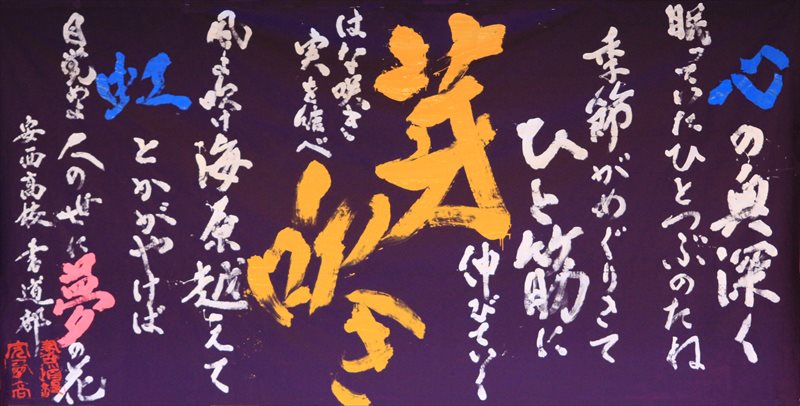 心の奥深く
眠っていたひとつぶのたね
季節がめぐりきて
ひと筋に
伸びていく
芽吹き
はな咲き
実を結べ
風よ吹け海原越えて
虹とかがやけば
目覚めよ人の世に夢の花
安西高校書道部